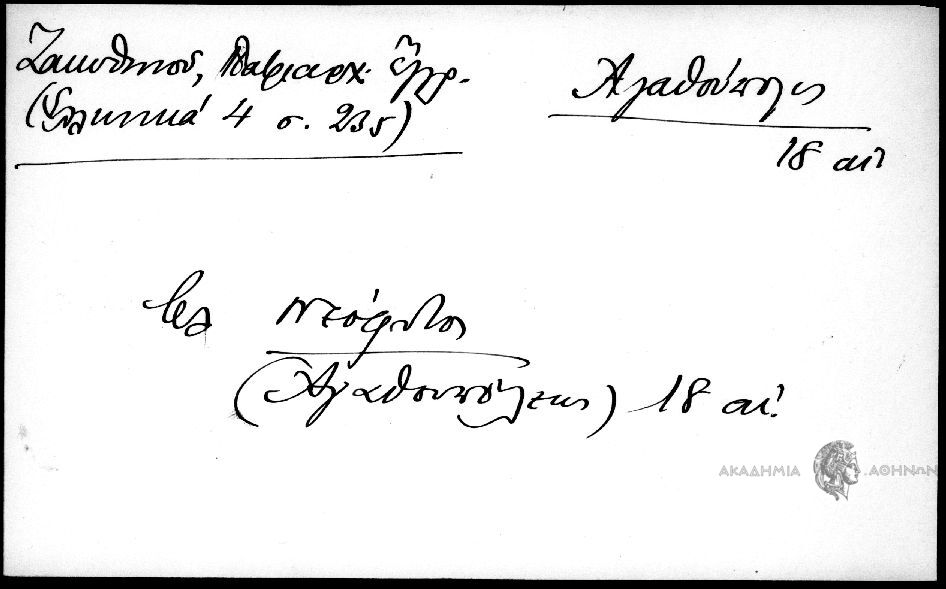 Ζακυθηνού, Πατριαρχ. ἔγγρ.
(Ἑλληνικά 4 σ. 235)
Ἀγαθούπολις
18 αἰ.
βλ Νεόφυτος
(Ἀγαθουπόλεως) 18 αἰ.
ΑΚΑΔΗΜΙΑ ΑΘΗΝΩΝ